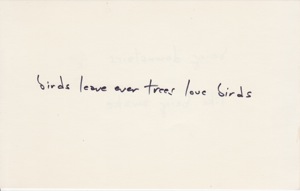 birds leave over trees love birds